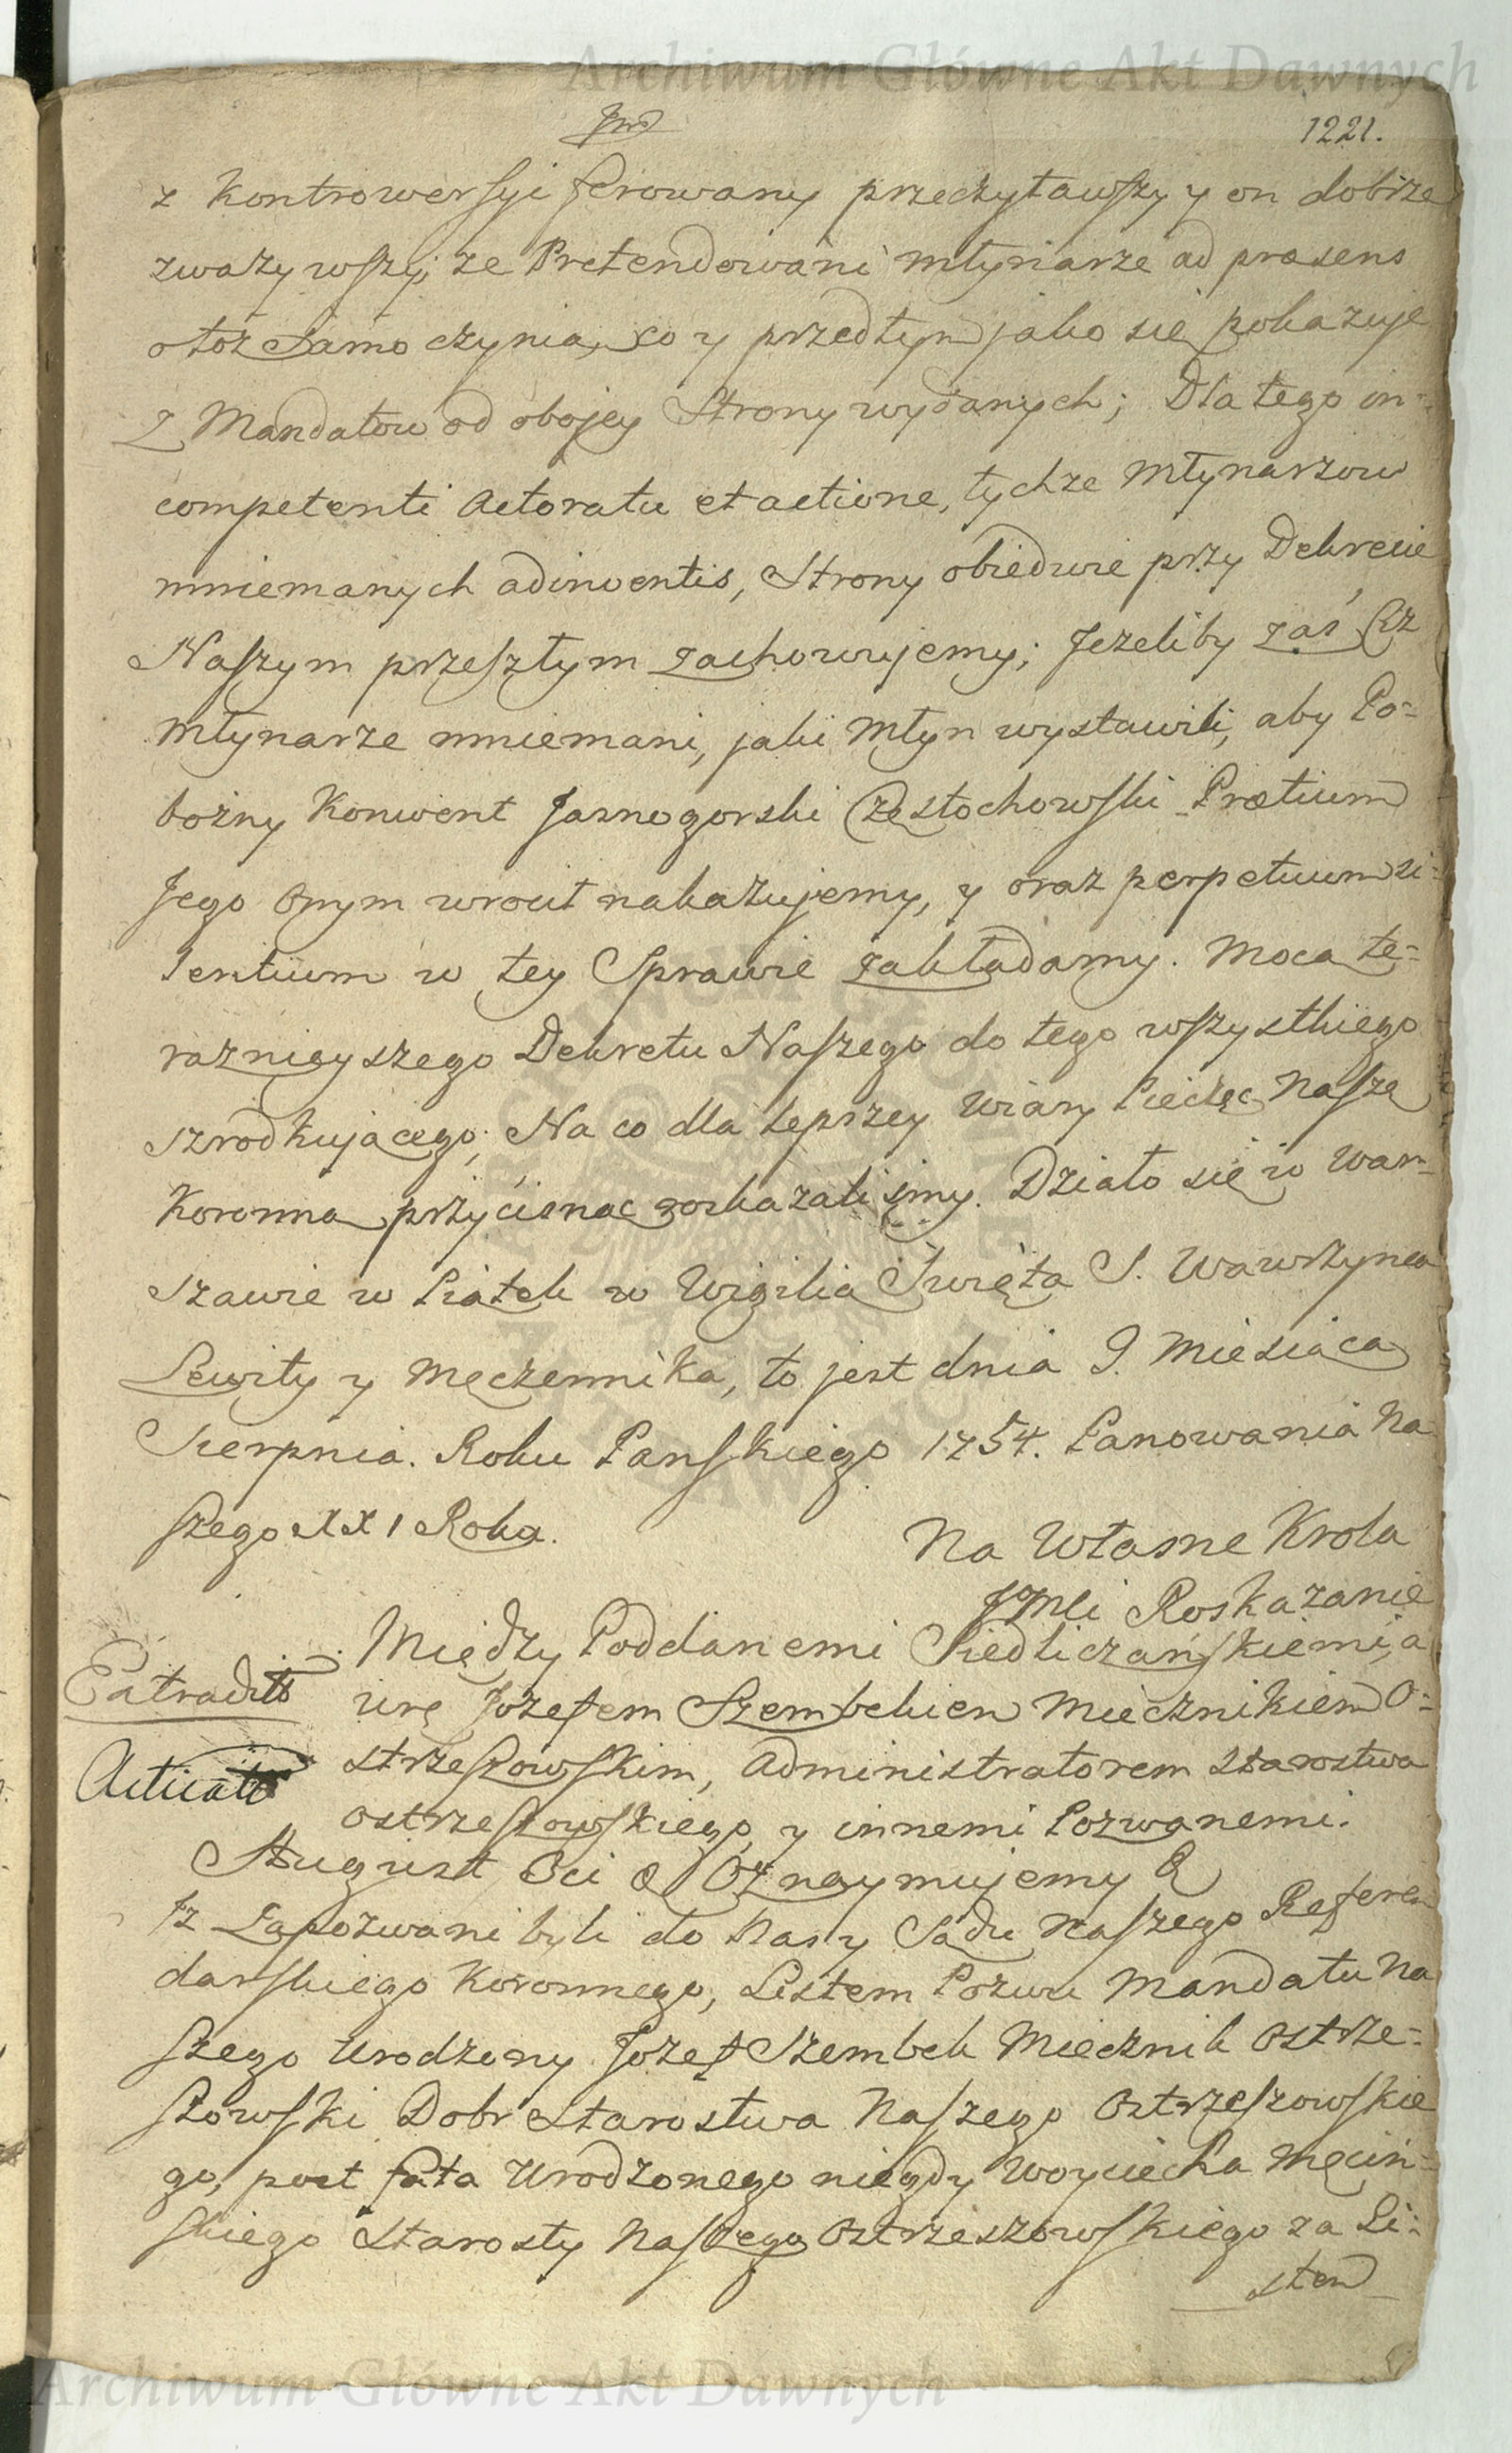 Archiwum Główne Akt Dawnych
1221.
z Kontrowersyi ferowany przeczytawszy y on dobrze
zważywszy, że Pretendowani młynarze ad præsens
otoż Samo czynią, co y przedtym jako się pokazuje
z Mandatow od obojey Strony wydanych; Dla tego in=
competenti Actoratu et actione, tychże Młynarzow
mniemanych adinventis, Strony obiedwie przy Dekrecie
Naszym przeszłym zachowujemy; Jeżeliby zaś Ciż
Młynarze mniemani, jaki Młyn wystawili, aby Po=
bożny Konwent Jasnogorski Częstochowski Prætium
Jego onym wrocił nakazujemy, y oraz perpetuum si=
lentium w tey Sprawie zakładamy. Mocą te=
raznieyszego Dekretu Naszego do tego wszystkiego
szrodkującego; Na co dla lepszey Wiary Pieczęć Naszę
Koronną przycisnąc roskazalismy. Działo się w War=
szawie w Piątek w Wigilią Święta S. Wawrzynca
Lewity y Męczennika, to jest dnia 9. Miesiąca
Sierpnia. Roku Panskiego 1754. Panowania Na
szego XXI Roku.
Na Własne Krola
JKMci Roskazanie
Między Poddanemi Siedliczańskiemi, a
Extradit
urę Jozefem Szembekiem Miecznikiem O=
strzeszowskim, Administratorem Starostwa
Acticat
Ostrzeszowskiego, y innemi Pozwanemi.
August Oci & Oznaymujemy &
Iż Zapozwani byli do Nas y Sądu Naszego Referen
darskiego Koronnego, Listem Pozwu Mandatu Na
szego Urodzony Jozef Szembek Miecznik Ostrze=
szowski Dobr Starostwa Naszego Ostrzeszowskie
go, post fata Urodzonego niegdy Woyciecha Męcin=
skiego Starosty Naszego Ostrzeszowskiego za Li=
stem
Archiwum Główne Akt Dawnych